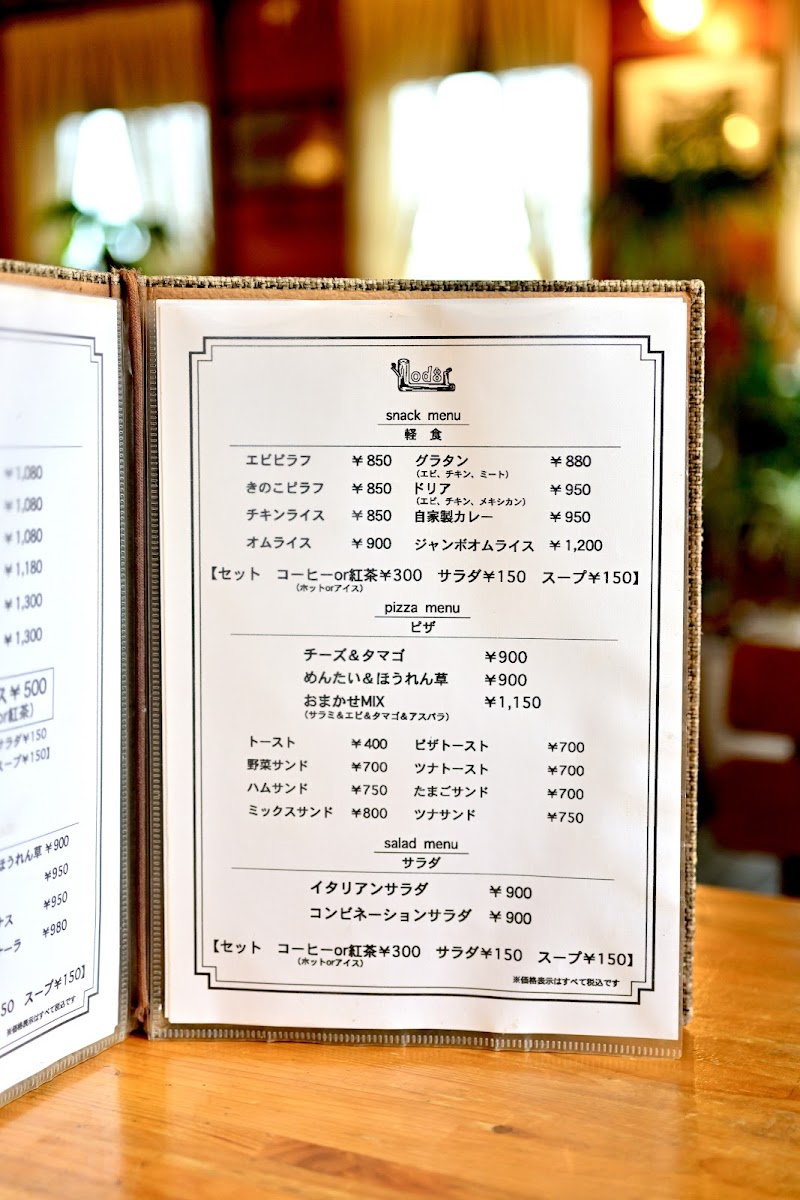 ¥1,080
¥1,080
¥1,080
¥1,180
¥1,300
¥1,300
ス¥500
or紅茶）
サラダ¥150
スープ¥150】
ほうれん草 ¥900
¥950
¥950
¥980
50 スープ¥150】
※価格表示はすべて税込です
snack menu
軽 食
エビピラフ ¥850 グラタン ¥880
（エビ、チキン、ミート）
きのこピラフ ¥850 ドリア ¥950
（エビ、チキン、メキシカン）
チキンライス ¥850 自家製カレー ¥950
オムライス ¥900 ジャンボオムライス ¥1,200
【セット コーヒーor紅茶¥300 サラダ¥150 スープ¥150】
（ホットorアイス）
pizza menu
ピザ
チーズ＆タマゴ ¥900
めんたい＆ほうれん草 ¥900
おまかせMIX ¥1,150
（サラミ＆エビ＆タマゴ＆アスパラ）
トースト ¥400 ピザトースト ¥700
野菜サンド ¥700 ツナトースト ¥700
ハムサンド ¥750 たまごサンド ¥700
ミックスサンド ¥800 ツナサンド ¥750
salad menu
サラダ
イタリアンサラダ ¥900
コンビネーションサラダ ¥900
【セット コーヒーor紅茶¥300 サラダ¥150 スープ¥150】
（ホットorアイス）
※価格表示はすべて税込です